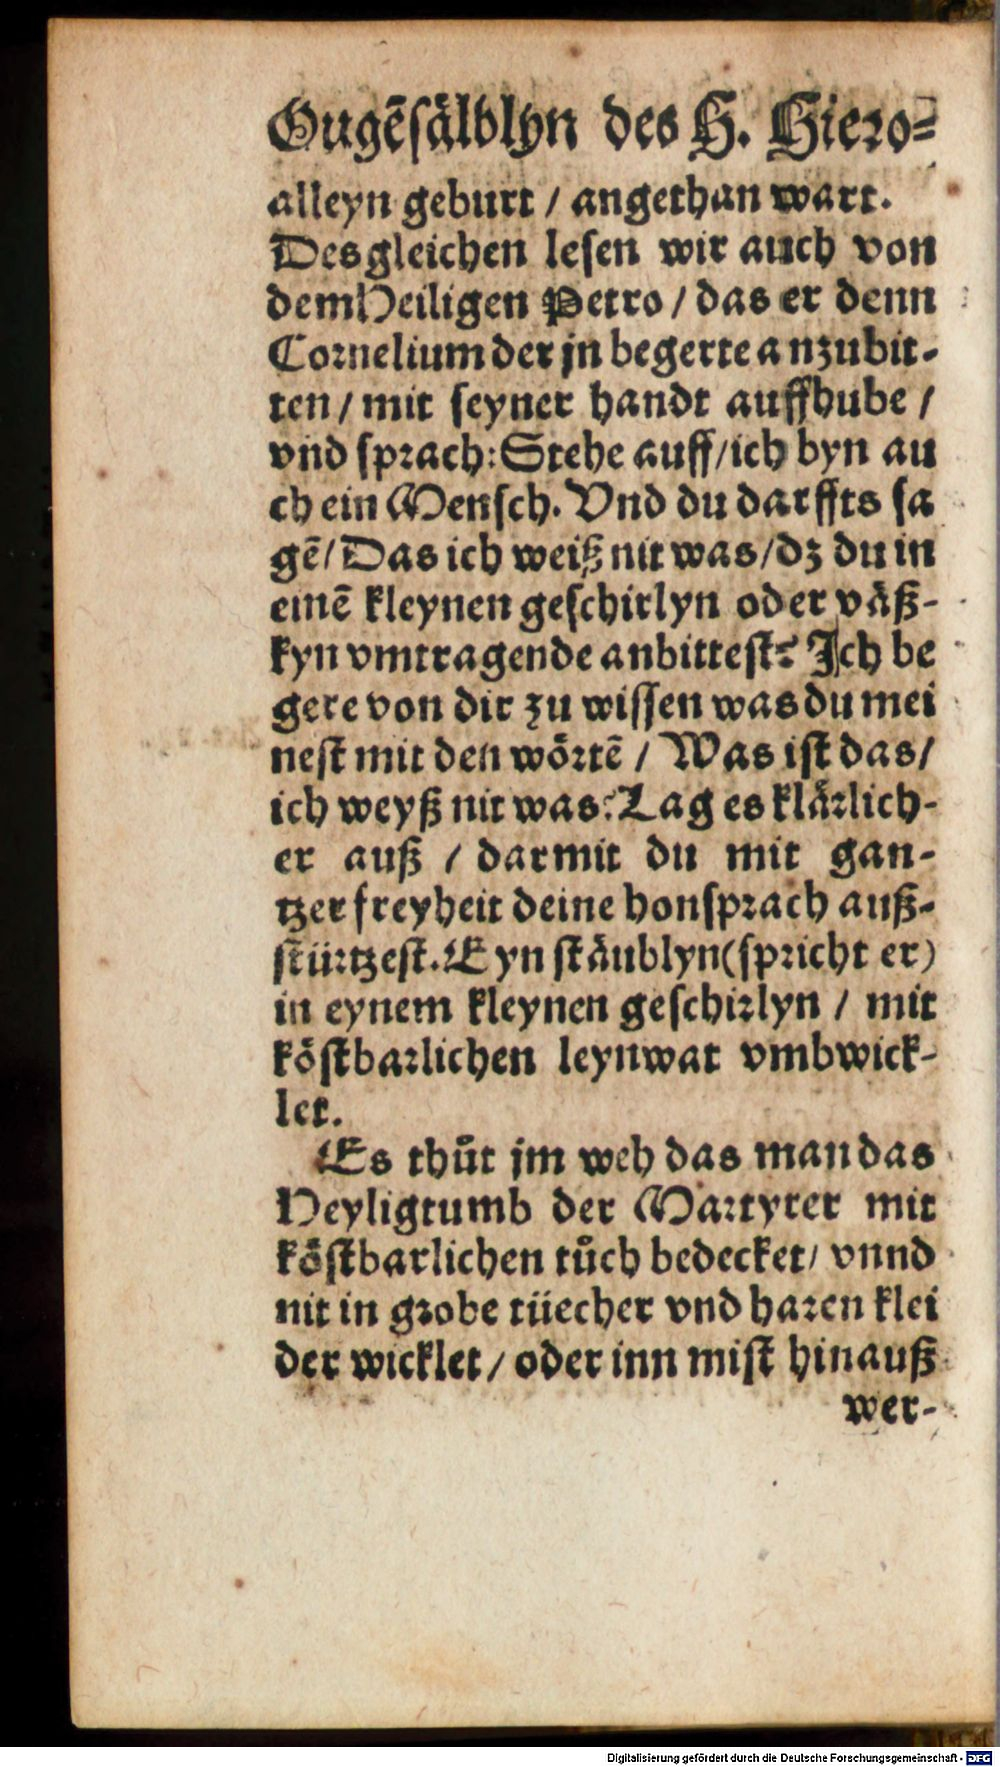 Ougẽsälblyn des H. Hiero-
alleyn geburt / angethan wart.
Desgleichen lesen wir auch von
dem Heiligen Petro / das er denn
Cornelium der jn begerte anzubit-
ten / mit seyner handt auffhube /
vnd sprach: Stehe auff / ich byn au
ch ein Mensch. Vnd du darffts sa
gẽ / Das ich weiß nit was / dz du in
einẽ kleynen geschirlyn oder väß-
kyn vmtragende anbittest? Ich be
gere von dir zu wissen was du mei
nest mit den wörtẽ / Was ist das /
ich weyß nit was: Lag es klärlich-
er auß / darmit du mit gan-
tzer freyheit deine honsprach auß-
stürtzest. Eyn stäublyn (spricht er)
in eynem kleynen geschirlyn / mit
köstbarlichen leynwat vmbwick-
let.
Es thůt jm weh das man das
Heyligtumb der Martyrer mit
köstbarlichen tůch bedecket / vnnd
nit in grobe tüecher vnd haren klei
der wicklet / oder inn mist hinauß
wer-
Digitalisierung gefördert durch die Deutsche Forschungsgemeinschaft - DFG